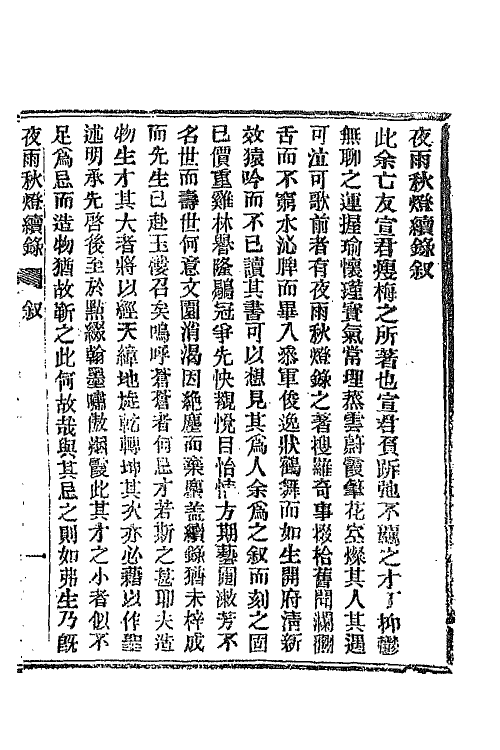 夜雨秋燈續錄叙
此余亡友宣君瘦梅之所著也宣君負跅弛不羈之才丁抑鬱
無聊之運握瑜懷瑾寶氣常埋蒸雲蔚霞筆花空燦其人其遇
可泣可歌前者有夜雨秋燈錄之著搜羅奇事掇拾舊聞瀾翻
舌而不窮水沁脾而畢入叅軍俊逸狀鶴舞而如生開府淸新
效猿吟而不已讀其書可以想見其爲人余爲之叙而刻之固
已價重雞林譽隆鶡冠爭先快覩悅目怡情方期藝圃漱芳不
名世而壽世何意文園消渴因絶塵而棄塵蓋續錄猶未梓成
而先生已赴玉樓召矣嗚呼蒼蒼者何忌才若斯之甚聊夫造
物生才其大者將以經天緯地旋乾轉坤其次亦必藉以作聖
述明承先啓後至於點綴翰墨嘯傲烟霞此其才之小者似不
足爲忌而造物猶故靳之此何故哉與其忌之則如弗生乃旣
夜雨秋燈續錄 叙 一